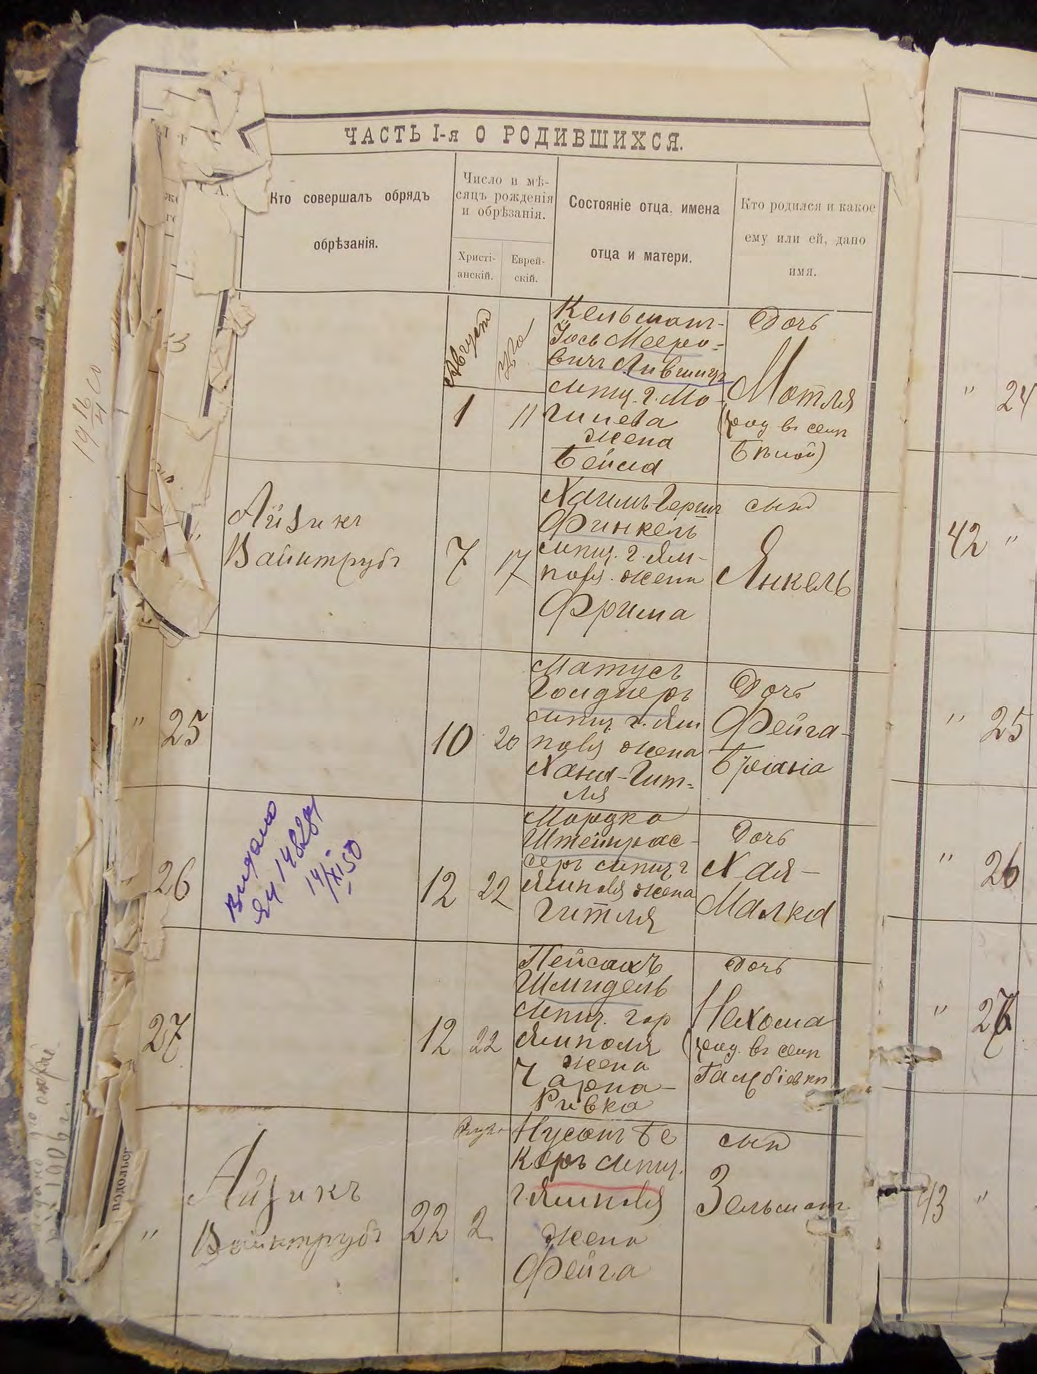 ЧАСТЬ I-я О РОДИВШИХСЯ.
Кто совершалъ обрядъ
обрѣзанія.
Число и мѣ-
сяцъ рожденія
и обрѣзанія.
Христі-
анскій.
Еврей-
скій.
Состояніе отца, имена
отца и матери.
Кто родился и какое
ему или ей, дано
имя.
Августъ
1
11
Кельманъ-
Іось Мееро-
вичъ Лившиц
мѣщ. г. Мо-
гилева
жена
Бейла
Дочь
Мотля
(род въ сел
" 24
Айзикъ
Вайнтрубъ
7
17
Хаимъ Герш
Финкель
мѣщ. г. Ям-
поля жена
Фрима
сынъ
Янкель
42 "
" 25
10
20
Матусъ
мѣщ г. Ям
поля жена
Хана-Гит-
ля
Дочь
Фейга-
" 25
26
Видано
14/XI-50
12
22
Мордко
Штейнрас-
мѣщ г
Ямполя жена
Гитля
Дочь
Хая-
Малка
" 26
27
12
22
Пейсахъ
Шмидель
мѣщ. гор
Ямполя
жена
Чарна-
Ривка
Дочь
Нехома
(род. въ сел
" 27
"
Айзикъ
Вайнтрубъ
22
2
Нусонъ Бе
керъ мѣщ.
г Ямполя
жена
Фейга
сынъ
Зельманъ
43 "